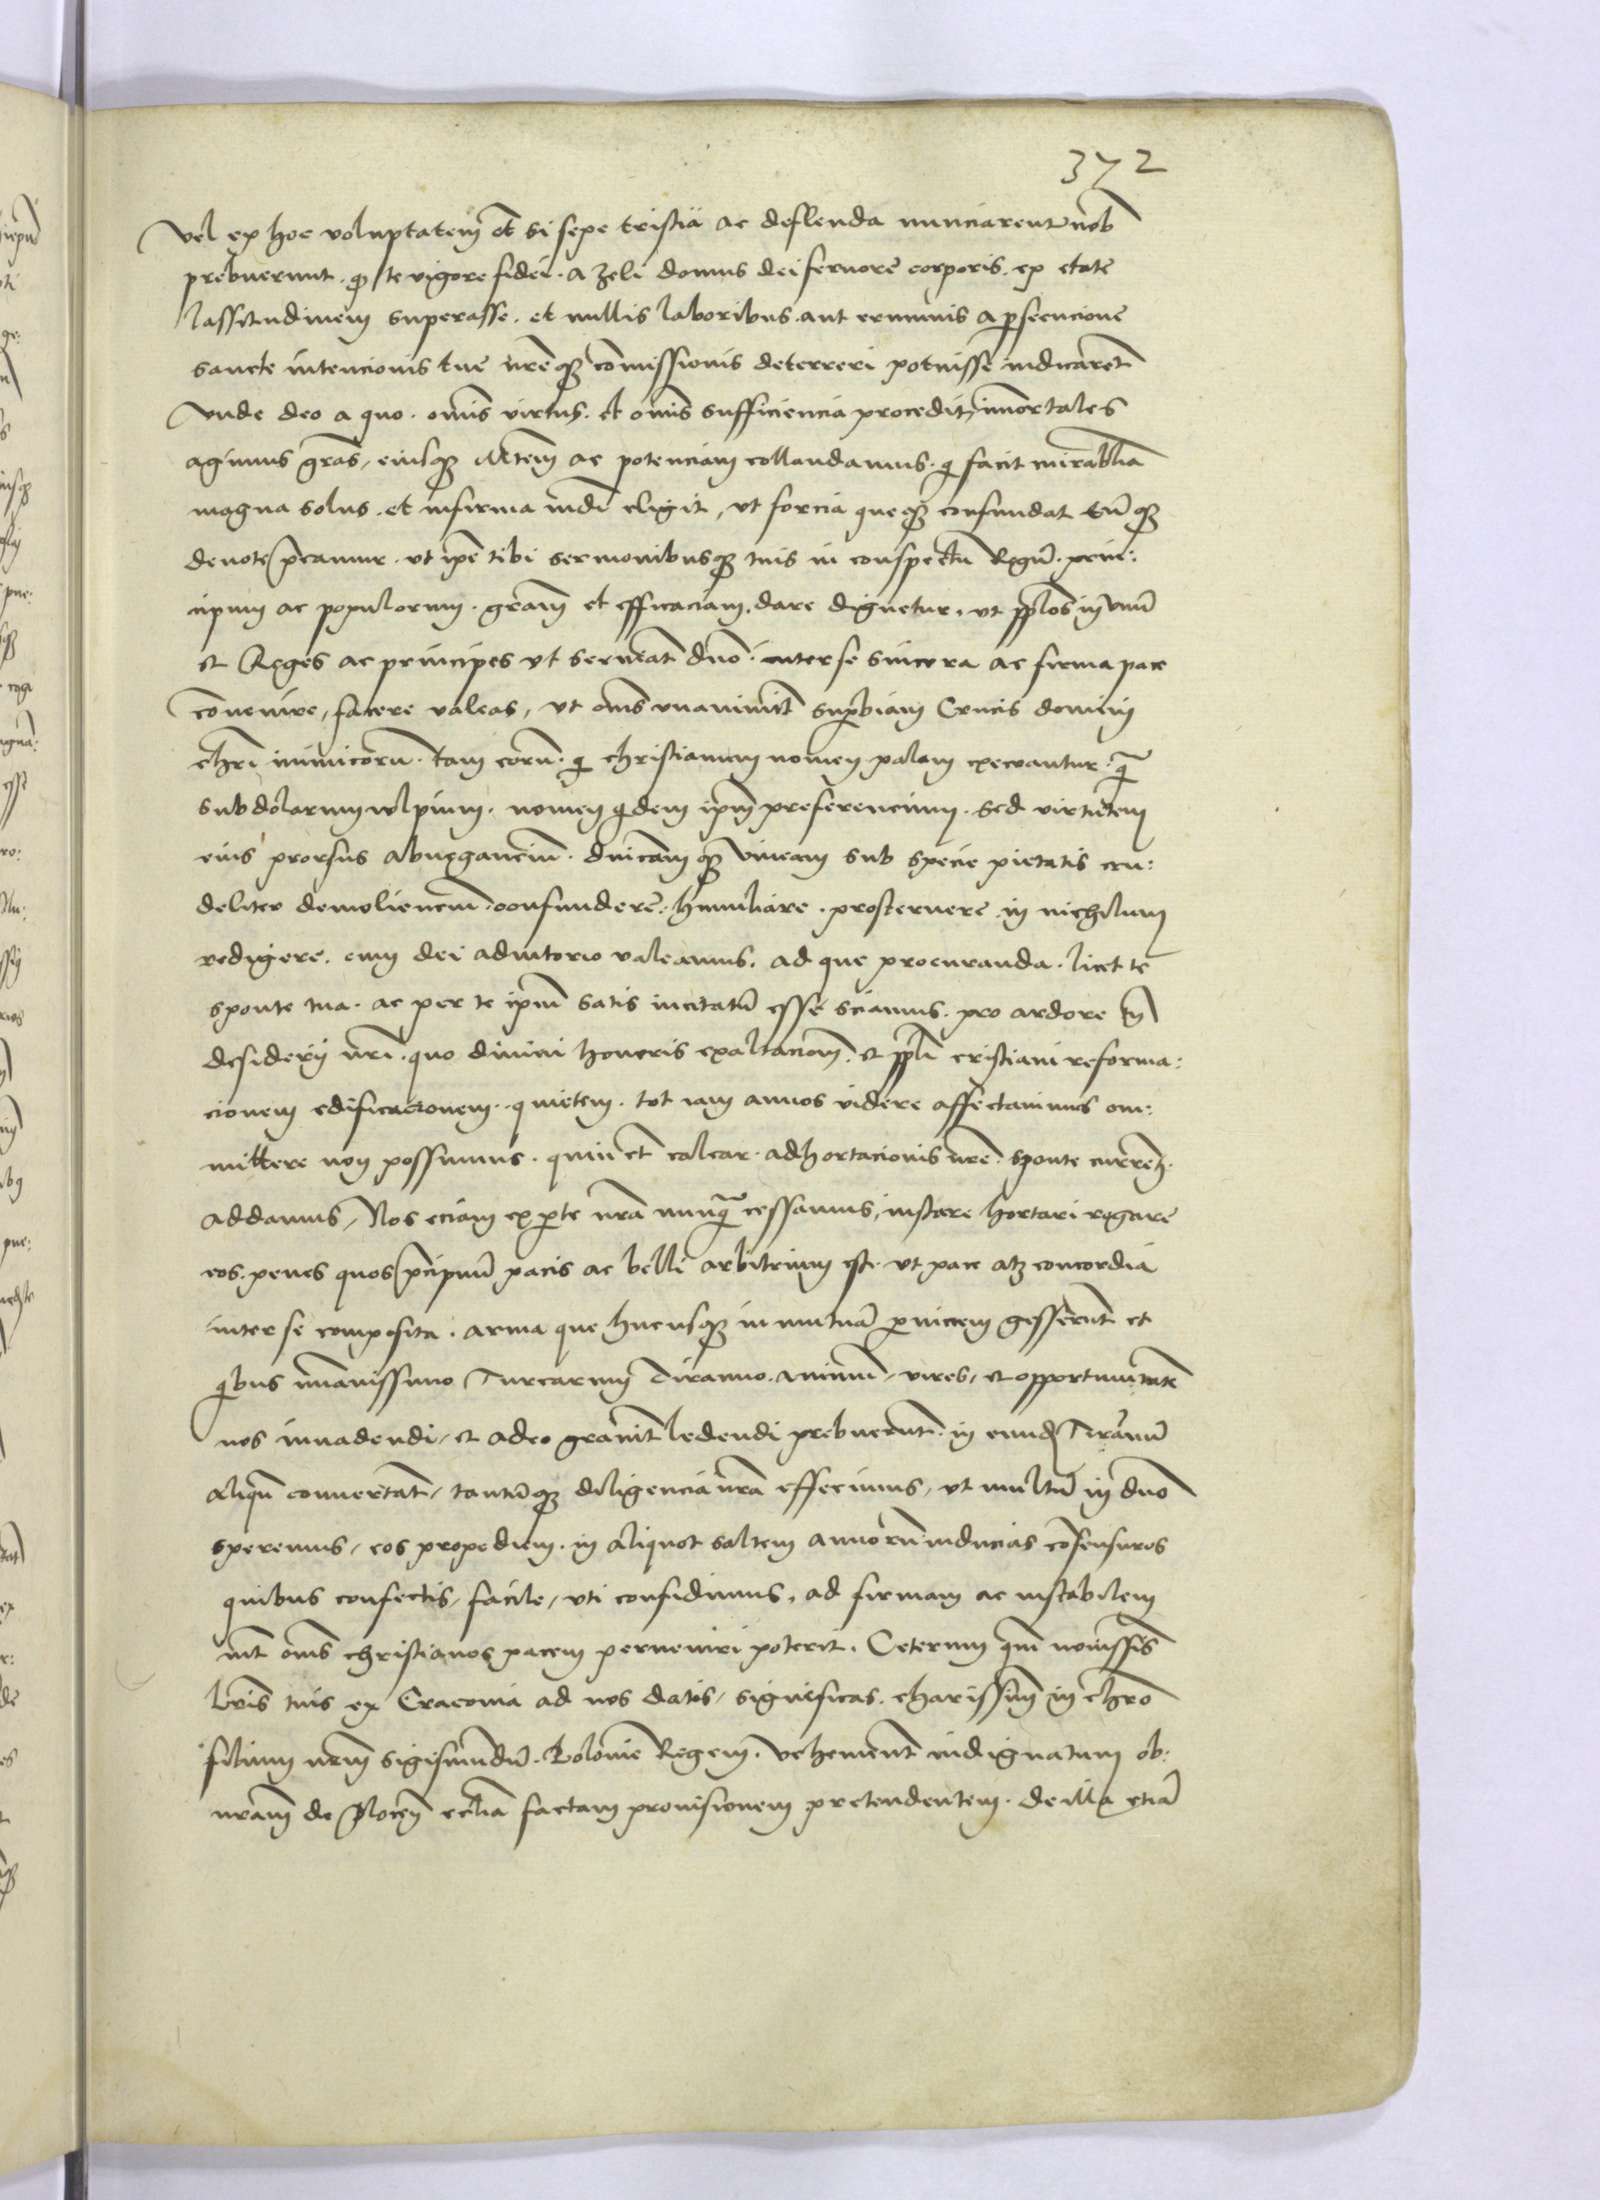 372
Vel ex hoc voluptatem et si sepe tristia ac deflenda nunciarent nob
prebuerunt. q te vigore fidei. a zeli domus dei fervore corporis. ex etate
lassitudinem superasse. et nullis laboribus. aut erumnis a psecucione
sancte intencionis tue nreq comissionis deterreri potuisse indicaret
Unde deo a quo. omis virtus. et omis sufficiencia procedit, immortales
agimus gras, eiusq ac potenciam collaudamus. q facit mirablia
magna solus. et infirma mdi eligit, ut forcia queq confundat Eu q
devote pcamur. ut ipe tibi sermonibusq tuis in conspectu Regu. prin:
cipum ac populorum. gram et efficaciam, dare dignetur, ut pplos in unu
et Reges ac principes ut serviat dno. inter se sincera ac firma pace
convenire, facere valeas, ut oms unanimit supbiam Crucis domini
chri inimicoru. tam eoru. q christianum nomen palam execrantur. q
subdolarum vulpium. nomen qdem ipm preferencium. sed virtutem
eius prorsus abnegancium. dnicam q vineam sub specie pietatis cru:
deliter demoliencium. confundere. humiliare. prosternere in nichilum
redigere. cum dei adiutorio valeamus. ad que procuranda. licet te
sponte tua. ac per te ipm satis incitatu esse sciamus. pro ardore tn
desiderii nri. quo divini honoris exaltacionem. et ppli cristiani reforma:
cionem edificacionem. quietem. tot iam annos videre affectavimus om:
mittere non possumus. quin et calcar. adhortacionis nre. sponte curren.
addamus, Nos eciam ex pte nra nunq cessamus, instare hortari rogare
eos. penes quos pcipuu pacis ac belli arbitrium est. ut pace atq concordia
inter se composita. arma que hucusq in mutua pniciem gesserunt et
qbus immanissimo Turcarum Tiranno. animu, vires, et opportunitate
nos invadendi, et adeo gravit ledendi prebuerunt. in eund Tiranu
aliqn convertant, tantuq diligencia nra effecimus, ut multu in dno
speremus, eos propediem. in aliquot saltem annoru inducias cosensuros
quibus confectis, facile, uti confidimus, ad firmam ac instabilem
int oms christianos pacem perveniri poterit. Ceterum qm novissis
lris tuis ex Cracovia ad nos datis, significas. charissim in chro
filium nrm Sigismundu. Polonie Regem. vehement indignatum ob:
nram de Plocen ecclia factam provisionem pretendentem. de illa etia